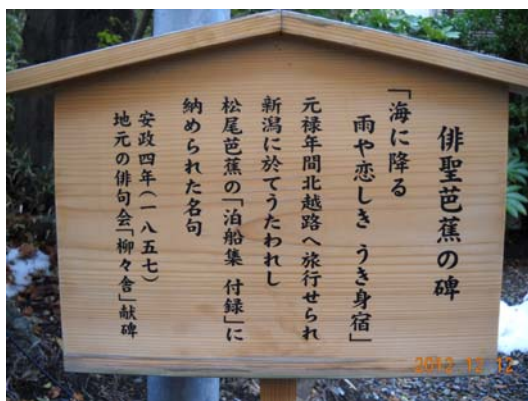 俳聖芭蕉の碑
「海に降る
雨や恋しき うき身宿」
元禄年間北越路へ旅行せられ
新潟に於てうたわれし
松尾芭蕉の「泊船集 付録」に
納められた名句
安政四年(一八五七)
地元の俳句会「柳々舎」献碑
2012 12 12